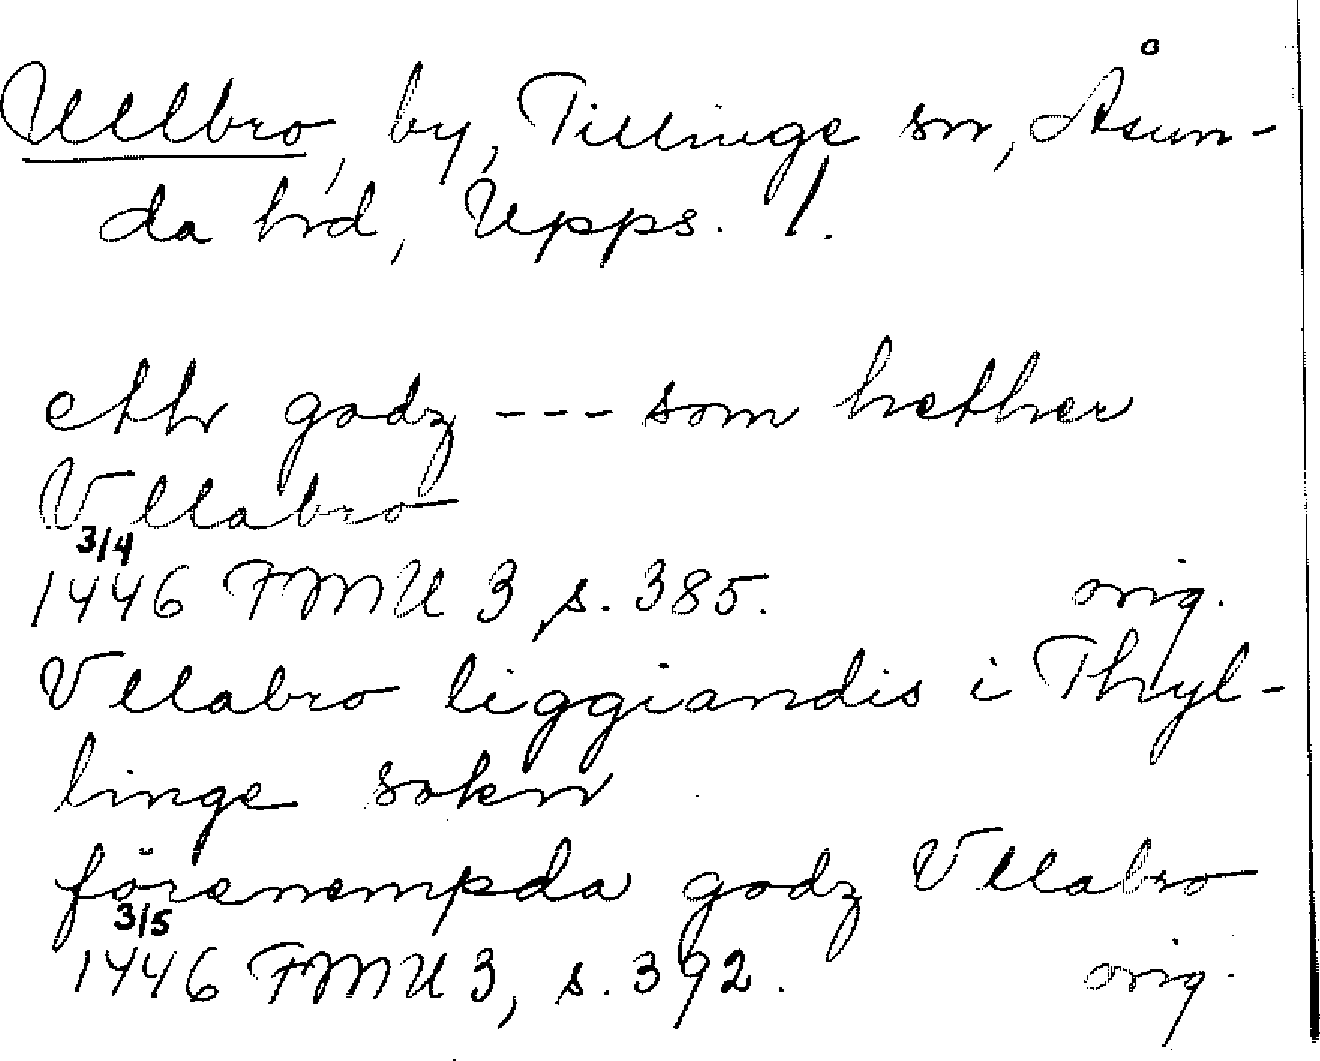 Ullbro, by, Tillinge sn, Åsun-
da hd, Upps. l.
etth godz --- som hether
Vllabro
3/4
1446 FMU 3 s. 385. orig.
Vllabro liggiandis i Thyl-
linge sokn
förenempda godz Vllabro
3/5
1446 FMU 3, s. 392. orig.